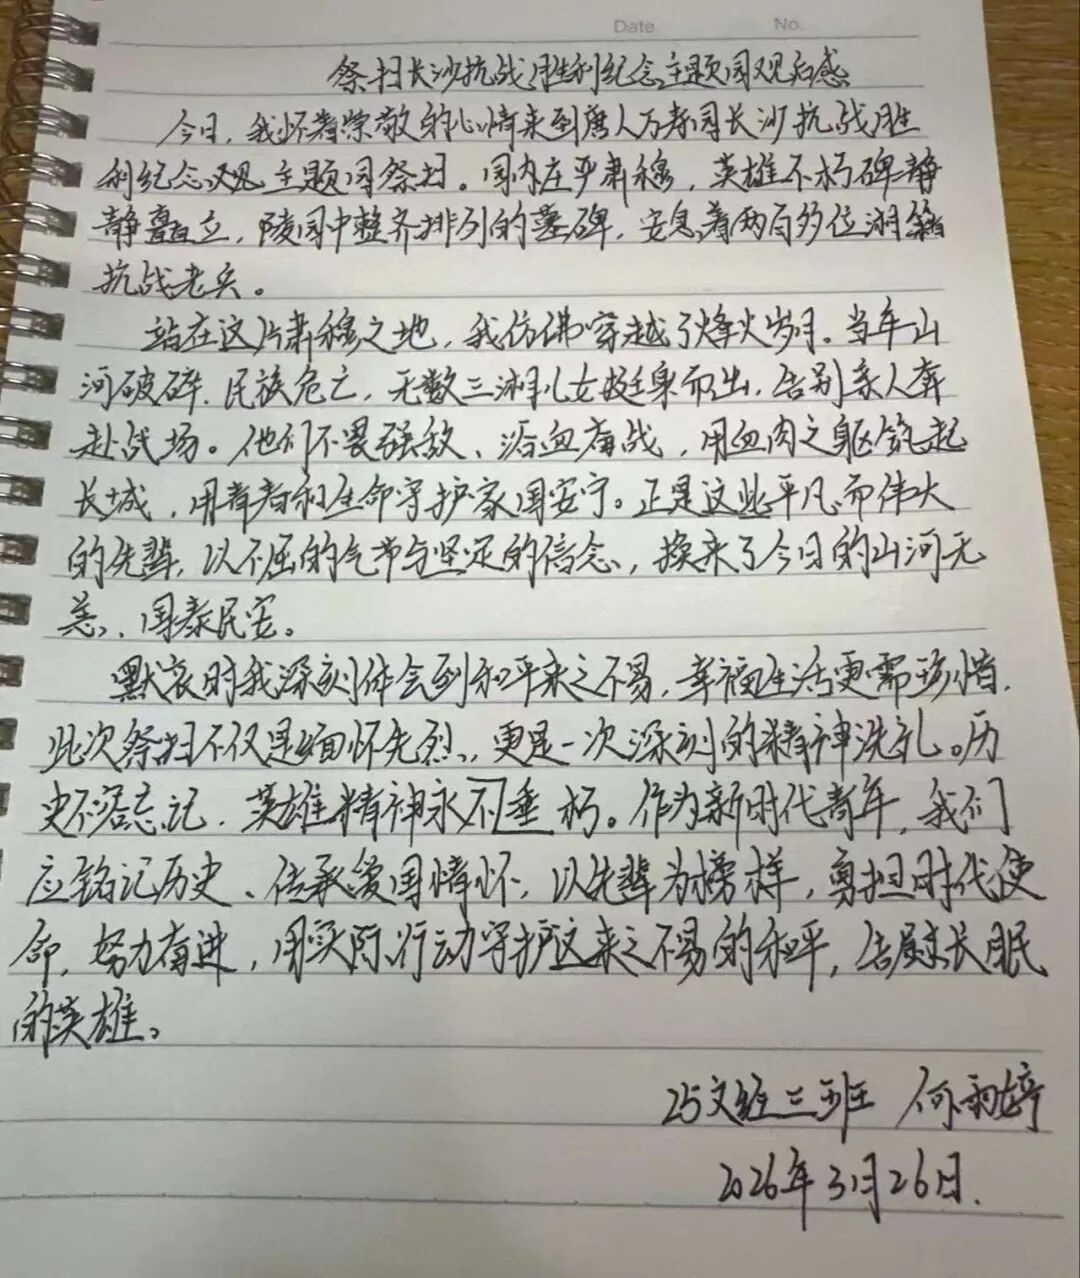 Date.
No.
祭扫长沙抗战胜利纪念主题园观后感
今日，我怀着崇敬的心情来到唐人万寿园长沙抗战胜
利纪念观主题园祭扫。园内庄严肃穆，英雄不朽碑静
静矗立，陵园中整齐排列的墓碑，安息着两百多位湖籍
抗战老兵。
站在这片肃穆之地，我仿佛穿越了烽火岁月。当年山
河破碎，民族危亡，无数三湘儿女挺身而出，告别亲人奔
赴战场。他们不畏强敌、浴血奋战，用血肉之躯筑起
长城，用青春和生命守护家国安宁。正是这些平凡而伟大
的先辈，以不屈的气节与坚定的信念，换来了今日的山河无
恙、国泰民安。
默哀时我深刻体会到和平来之不易，幸福生活更需珍惜，
此次祭扫不仅是缅怀先烈，更是一次深刻的精神洗礼。历
史不容忘记，英雄精神永不垂朽。作为新时代青年，我们
应铭记历史、传承爱国情怀，以先辈为榜样，勇担时代使
命，努力奋进，用实际行动守护这来之不易的和平，告慰长眠
的英雄。
25文经三班 何雨婷
2026年3月26日.